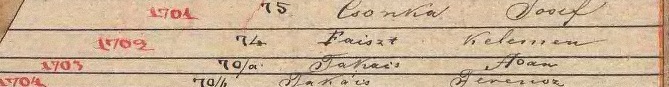 1701 75 Csonka Josef
1702 74 Faiszt Kelemen
1703 70/a. Takács
1704 70/b Takács Ferencz